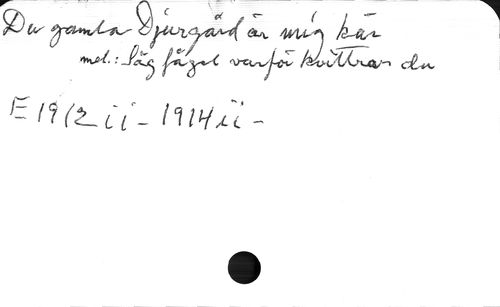 Du gamla Djurgård är mig kär
mel.: Säg fågel varför kvittrar du
E 1912 ii - 1914 ii -